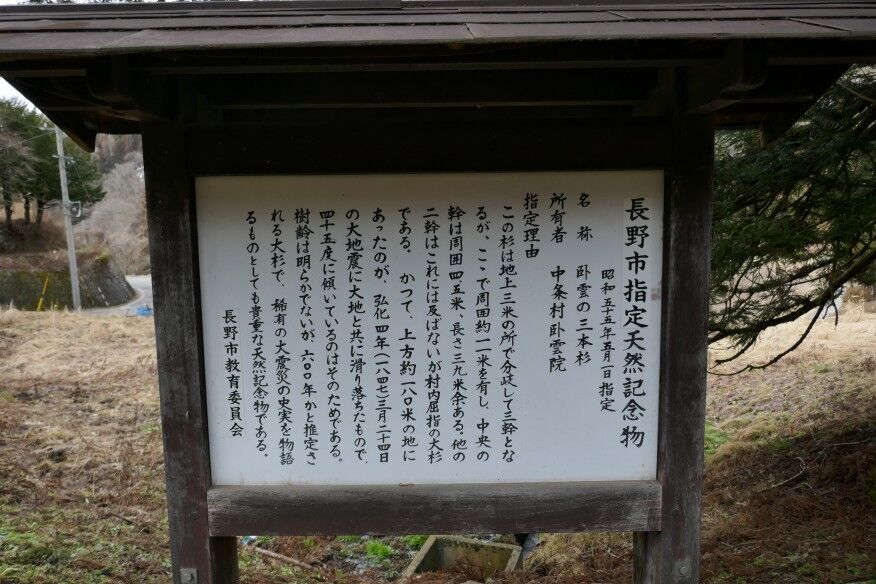 長野市指定天然記念物
昭和五十五年五月一日指定
名称 卧雲の三本杉
所有者 中条村卧雲院
指定理由
この杉は地上三米の所で分歧して三幹とな
るが、ここで周囲約一一米を有し、中央の
幹は周囲四・五米、長さ三九米余ある。他の
二幹はこれには及ばないが村内屈指の大杉
である。かつて、上方約一八〇米の地に
あったのが、弘化四年(一八四七)三月二十四日
の大地震に大地と共に滑り落ちたもので、
四十五度に傾いているのはそのためである。
樹齢は明らかでないが、六〇〇年かと推定さ
れる大杉で、稀有の大震災の史実を物語
るものとしても貴重な天然記念物である。
長野市教育委員会